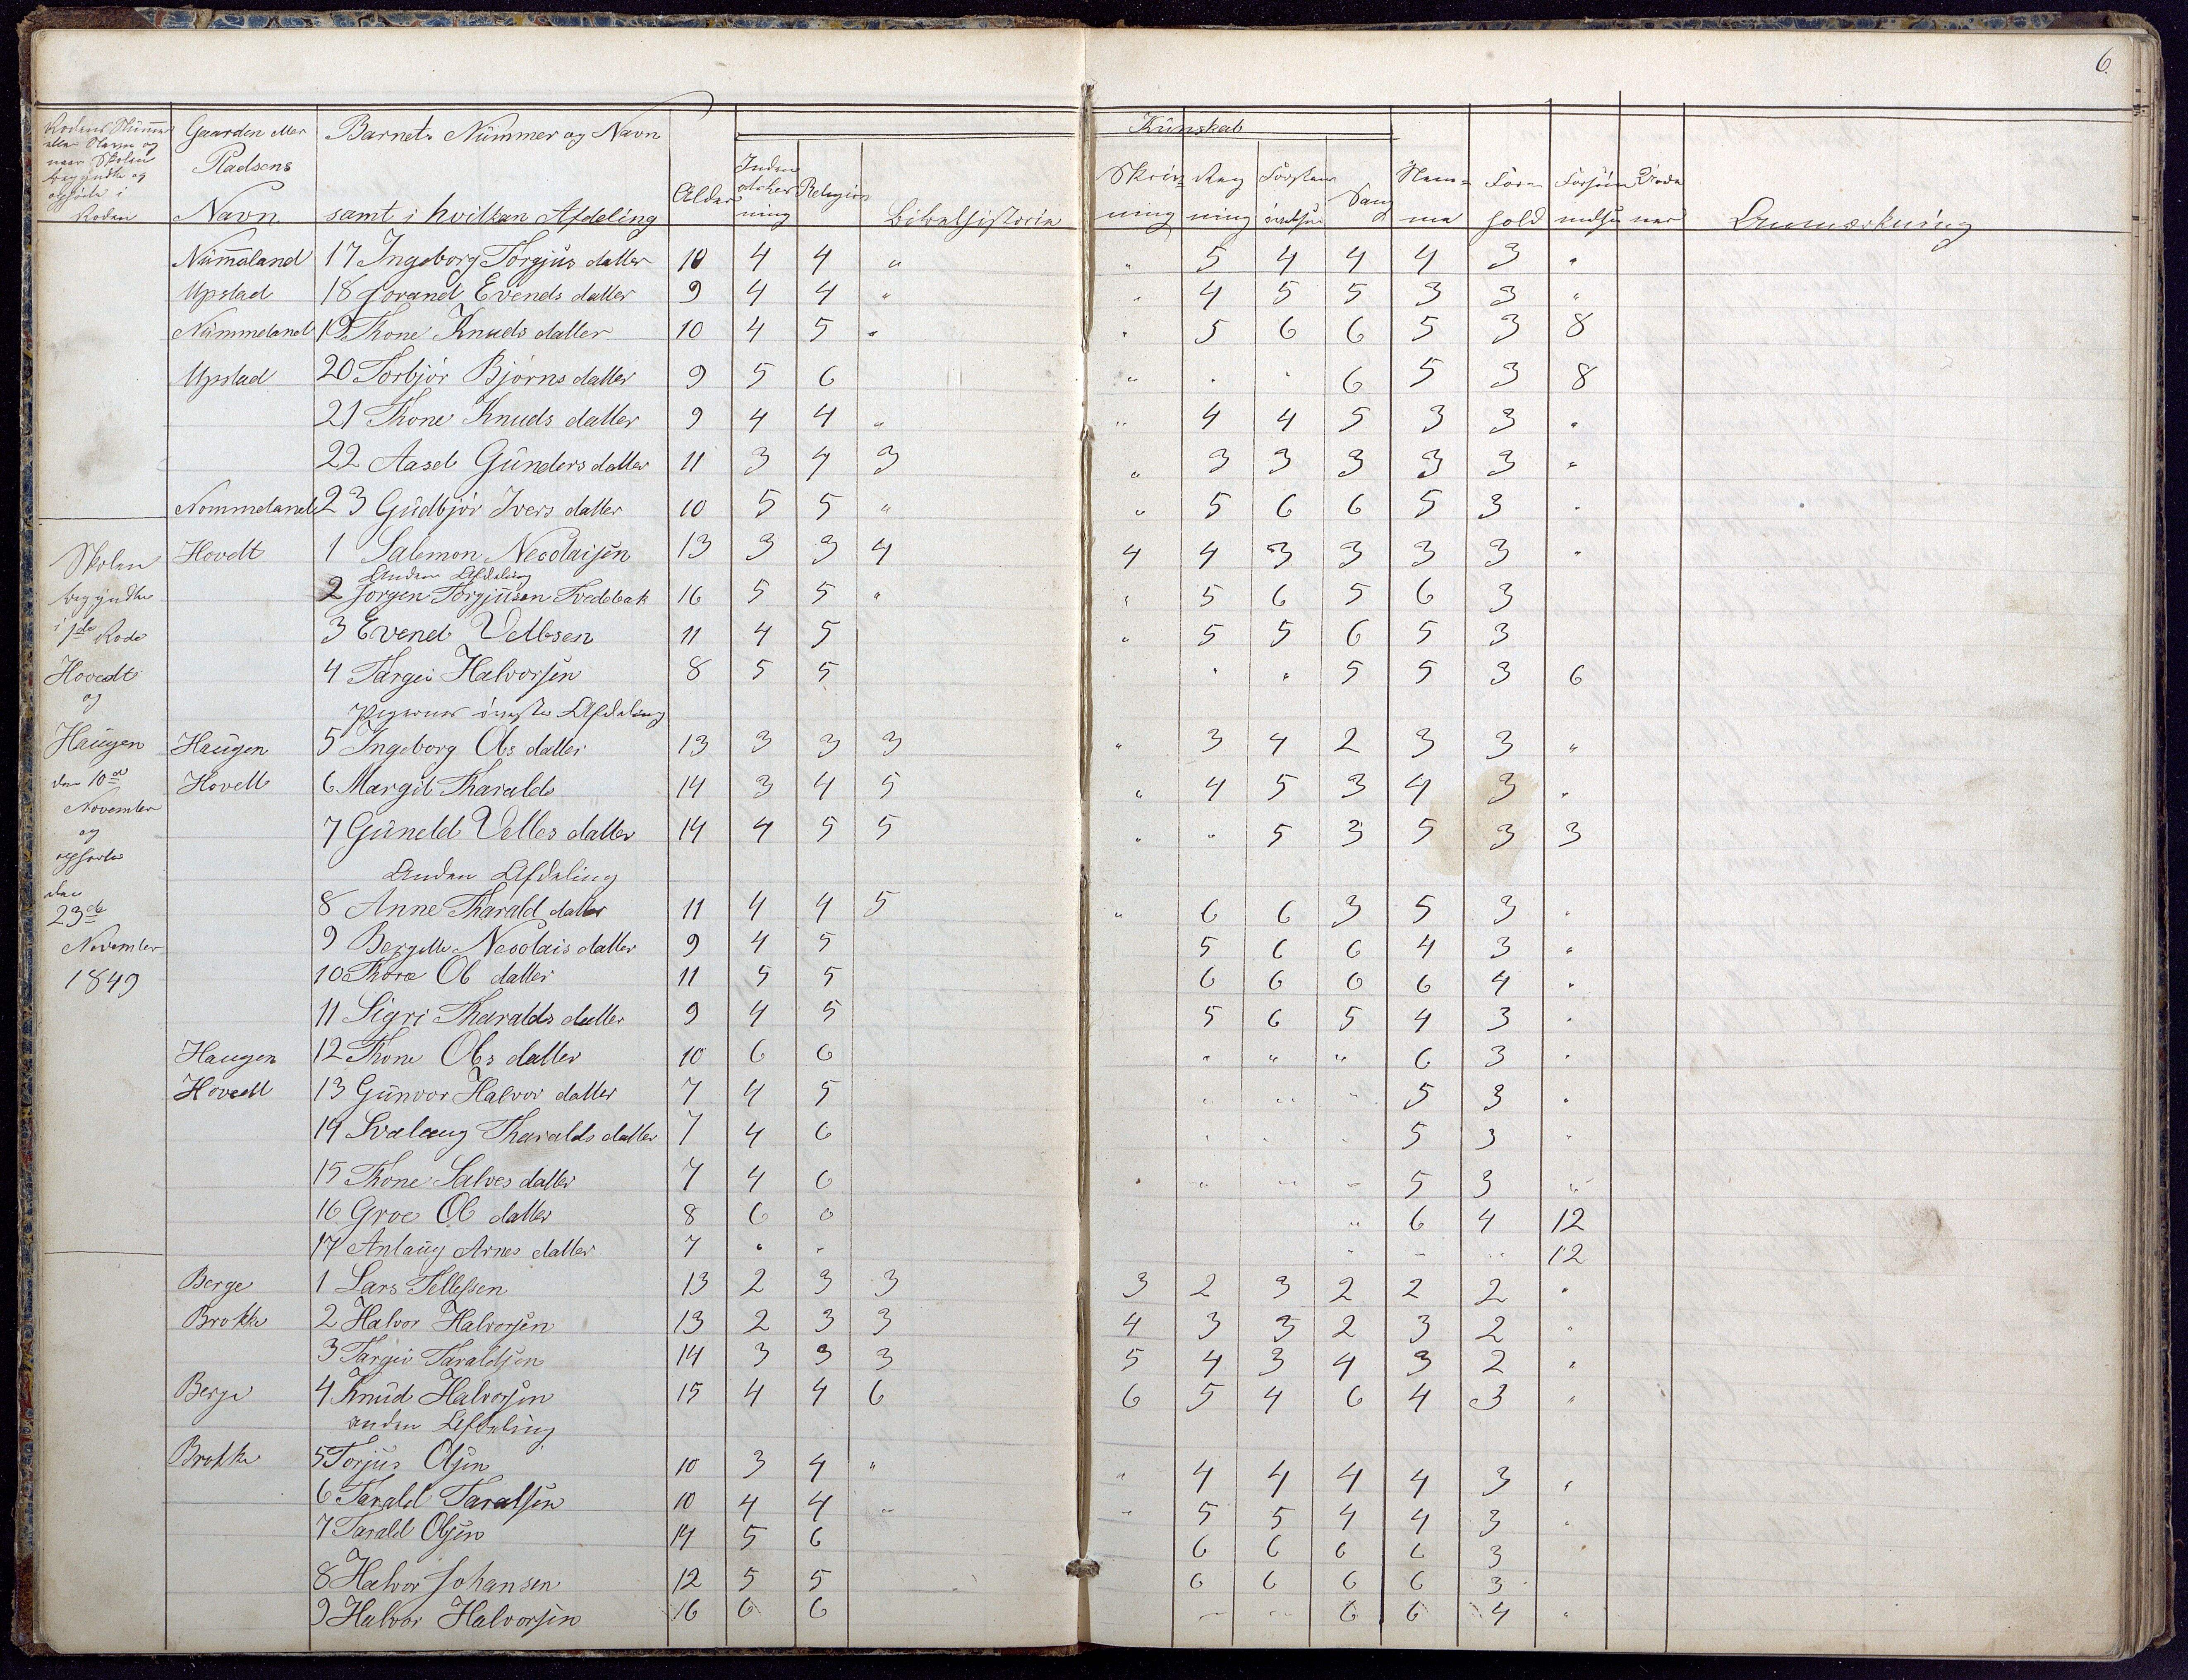 6.
Rodens Nummer eller Navn og naar Skolen begyndte og ophørte i Roden | Gaarden eller Pladsens Navn | Barnets Nummer og Navn samt i hvilken Afdeling | Alder | Kundskab: Inden ad Læsning | Religion | Bibelhistorie | Skrivning | Regning | Forstandsøvelser | Sang | Nemme | Forhold | Forsømmelser | Anmærkning
Nummeland 17 Ingeborg Torgjus datter 10 4 4 " " 5 4 4 4 3 "
Upstad 18 Jorand Evends datter 9 4 4 " " 4 5 5 3 3 "
Nummeland 19 Thone Knuds datter 10 4 5 " " 5 6 6 5 3 8
Upstad 20 Torbjør Bjørns datter 9 5 6 " " " 6 5 3 8
21 Thone Knuds datter 9 4 4 " " 4 4 5 3 3 "
22 Aasel Gunders datter 11 3 4 3 " 3 3 3 3 3 "
Nommeland 23 Gudbjør Ivers datter 10 5 5 " " 5 6 6 5 3 "
Skolen begyndte i 1de Rode Hovedt og Haugen den 10de November og ophørte den 23de November 1849
Hovdt 1 Salemon Necolaisen 13 3 3 4 4 4 3 3 3 3 "
Anden Afdeling
2 Jorgen Torgjusen Tvedebak 16 5 5 " " 5 6 5 6 3
3 Evend Velbsen 11 4 5 " 5 5 6 5 3
4 Targei Halvorsen 8 5 5 " " 5 5 3 6
Pigernes øverste Afdeling
Haugen 5 Ingeborg Obs datter 13 3 3 3 " 3 4 2 3 3 "
Hovett 6 Margit Tharalds 14 3 4 5 " 4 5 3 4 3 "
7 Guneld Velles datter 14 4 5 5 " " 5 3 5 3 3
Anden Afdeling
8 Anne Tharald datter 11 4 4 5 " 6 6 3 5 3 "
9 Bergitte Necolais datter 9 4 5 5 6 6 4 3 "
10 Thore Ob datter 11 5 5 6 6 6 6 4 "
11 Sigri Tharalds datter 9 4 5 5 6 5 4 3 "
Haugen 12 Thone Obs datter 10 6 6 " " " 6 3 "
Hovedt 13 Gunvor Halvor datter 7 4 5 " " " 5 3 "
14 Svalaug Tharalds datter 7 4 6 " " " 5 3 "
15 Thone Salves datter 7 4 6 " " " " 5 3 "
16 Groe Ob datter 8 6 0 " 6 4 12
17 Anlaug Arnes datter 7 " " " " " 12
Berge 1 Lars Tellefsen 13 2 3 3 3 2 3 2 2 2 "
Brokke 2 Halvor Halvorsen 13 2 3 3 4 3 3 2 3 2 "
3 Targei Taraldsen 14 3 3 3 5 4 3 4 3 2 "
Berge 4 Knud Halvorsen 15 4 4 6 6 5 4 6 4 3 "
anden Afdeling
Brokke 5 Torjus Olsen 10 3 4 " " 4 4 4 4 3 "
6 Tarald Taralsen 10 4 4 " " 5 5 4 4 3 "
7 Tarald Olsen 14 5 6 6 6 6 6 3
8 Halvor Johansen 12 5 5 6 6 6 6 3
9 Halvor Halvorsen 16 6 6 " " 6 6 4 "